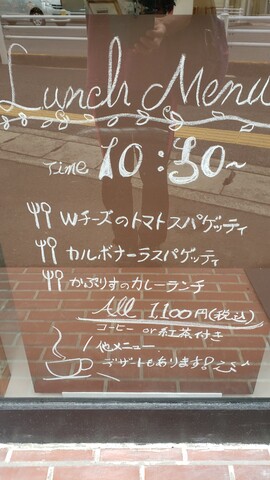 Lunch Menu
Time 10:30~
Wチーズのトマトスパゲッティ
カルボナーラスパゲッティ
かぷりすのカレーランチ
All 1,100円(税込)
コーヒー or 紅茶付き
他メニュー
デザートもあります!